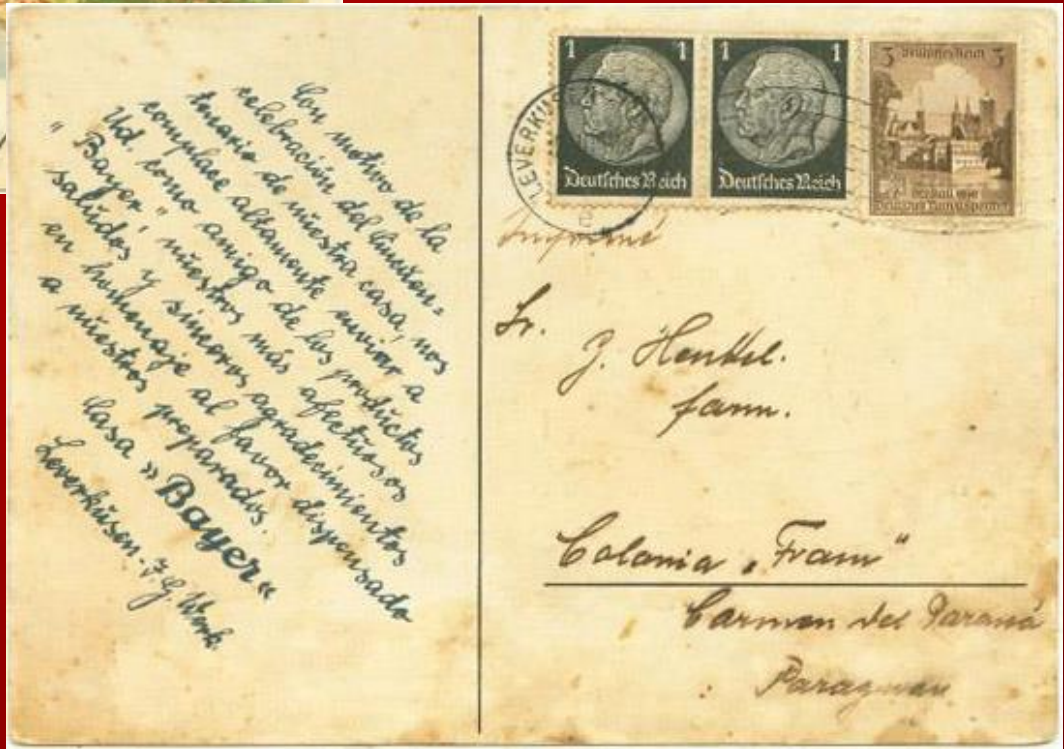 Con motivo de la
celebración del Cincüen=
tenario de nüestra casa, nos
complace altamente enviar a
Ud. como amigo de los prodüctos
"Bayer", nüestros más afectüosos
salüdos y sinceros agradecimientos
en homenaje al favor dispensado
a nüestros preparados.
Casa »Bayer«
Leverküsen-I.G. Werk.
1 1
Deutsches Reich
1 1
Deutsches Reich
3 Deutsches Reich 3
LEVERKUS
e
Sr.
J. Henkel.
farm.
Colonia „Fram"
Carmen del Paraná
Paraguay